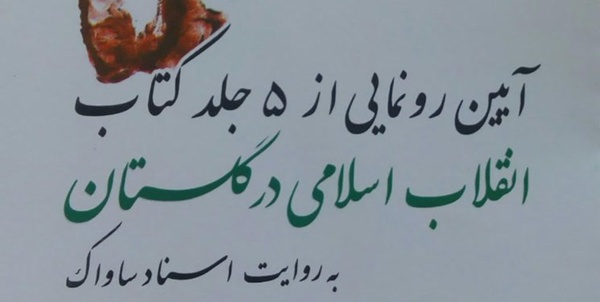 آیین رونمایی از ۵ جلد کتاب
انقلاب اسلامی در گلستان
به روایت اسناد ساواک